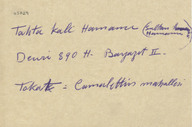 Tahta kale Hamamı (Sultan Hamamı)
Devri 890 H. Bayazıt II.
Tokat = Camulettin mahallesi